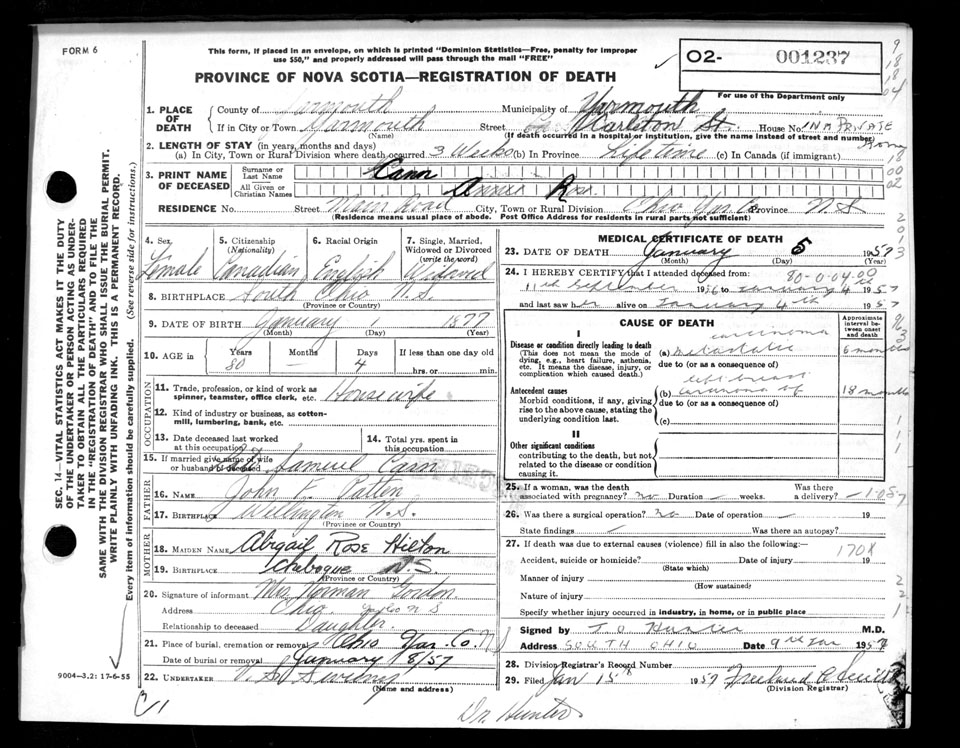 FORM 6
This form, if placed in an envelope, on which is printed "Dominion Statistics—Free, penalty for improper
use $50," and properly addressed will pass through the mail "FREE"
PROVINCE OF NOVA SCOTIA—REGISTRATION OF DEATH
O2- 001237
For use of the Department only
9 18 18 04
1. PLACE OF DEATH
County of Yarmouth Municipality of Yarmouth
If in City or Town Yarmouth Street Carleton St. House No. IN A PRIVATE Home
(Name) (If death occurred in a hospital or institution, give the name instead of street and number)
2. LENGTH OF STAY (in years, months and days)
(a) In City, Town or Rural Division where death occurred 3 Weeks (b) In Province Lifetime (c) In Canada (if immigrant)
18
00
02
3. PRINT NAME OF DECEASED
Surname or Last Name Cann
All Given or Christian Names Annie Rose
RESIDENCE No. Street Main Road City, Town or Rural Division Ohio Yar. Co. Province N.S
(Residence means usual place of abode. Post Office Address for residents in rural parts not sufficient)
2013
4. Sex Female
5. Citizenship (Nationality) Canadian
6. Racial Origin English
7. Single, Married, Widowed or Divorced (write the word) Widowed
8. BIRTHPLACE South Ohio N.S.
(Province or Country)
9. DATE OF BIRTH January 1 1877
(Month) (Day) (Year)
10. AGE in Years 80 Months — Days 4 If less than one day old hrs. or min.
OCCUPATION
11. Trade, profession, or kind of work as spinner, teamster, office clerk, etc. Housewife
12. Kind of industry or business, as cotton-mill, lumbering, bank, etc.
13. Date deceased last worked at this occupation
14. Total yrs. spent in this occupation
15. If married give name of wife or husband of deceased Samuel Cann
FATHER
16. NAME John K. Patten
17. BIRTHPLACE Wellington N.S.
(Province or Country)
MOTHER
18. MAIDEN NAME Abigail Rose Hilton
19. BIRTHPLACE Chebogue N.S.
(Province or Country)
20. Signature of informant Mrs Norman Gordon
Address Ohio Yar Co N S
Relationship to deceased Daughter
21. Place of burial, cremation or removal Ohio Yar. Co. N S
Date of burial or removal January 8/57
22. UNDERTAKER V. S. Sweeny
(Name and address)
MEDICAL CERTIFICATE OF DEATH
23. DATE OF DEATH January 5 1957
(Month) (Day)
24. I HEREBY CERTIFY that I attended deceased from:
80-0-04.00
11th September 1956 to January 4th 1957
and last saw her alive on January 4th 1957
CAUSE OF DEATH
Approximate interval between onset and death
I
Disease or condition directly leading to death
(This does not mean the mode of dying, e.g., heart failure, asthenia, etc. It means the disease, injury, or complication which caused death.)
(a) carcinoma metastatic 6 months
due to (or as a consequence of)
Antecedent causes
Morbid conditions, if any, giving rise to the above cause, stating the underlying condition last.
(b) left breast carcinoma of 18 months
due to (or as a consequence of)
(c)
II
Other significant conditions
contributing to the death, but not related to the disease or condition causing it.
25. If a woman, was the death associated with pregnancy? no Duration — weeks. Was there a delivery? —
26. Was there a surgical operation? no Date of operation — 19
State findings — Was there an autopsy?
27. If death was due to external causes (violence) fill in also the following:—
170X
Accident, suicide or homicide? Date of injury 19
(State which)
Manner of injury
(How sustained)
Nature of injury
Specify whether injury occurred in industry, in home, or in public place
Signed by J O Hunter M.D.
Address SOUTH OHIO Date 9th Jan 1957
28. Division Registrar's Record Number
29. Filed Jan 15th 1957
(Division Registrar)
Dr. Hunter
9004-3.2: 17-6-55
SEC. 14—VITAL STATISTICS ACT MAKES IT THE DUTY
OF THE UNDERTAKER OR PERSON ACTING AS UNDER-
TAKER TO OBTAIN ALL THE PARTICULARS REQUIRED
IN THE "REGISTRATION OF DEATH" AND TO FILE THE
SAME WITH THE DIVISION REGISTRAR WHO SHALL ISSUE THE BURIAL PERMIT.
WRITE PLAINLY WITH UNFADING INK. THIS IS A PERMANENT RECORD.
Every item of information should be carefully supplied. (See reverse side for instructions.)